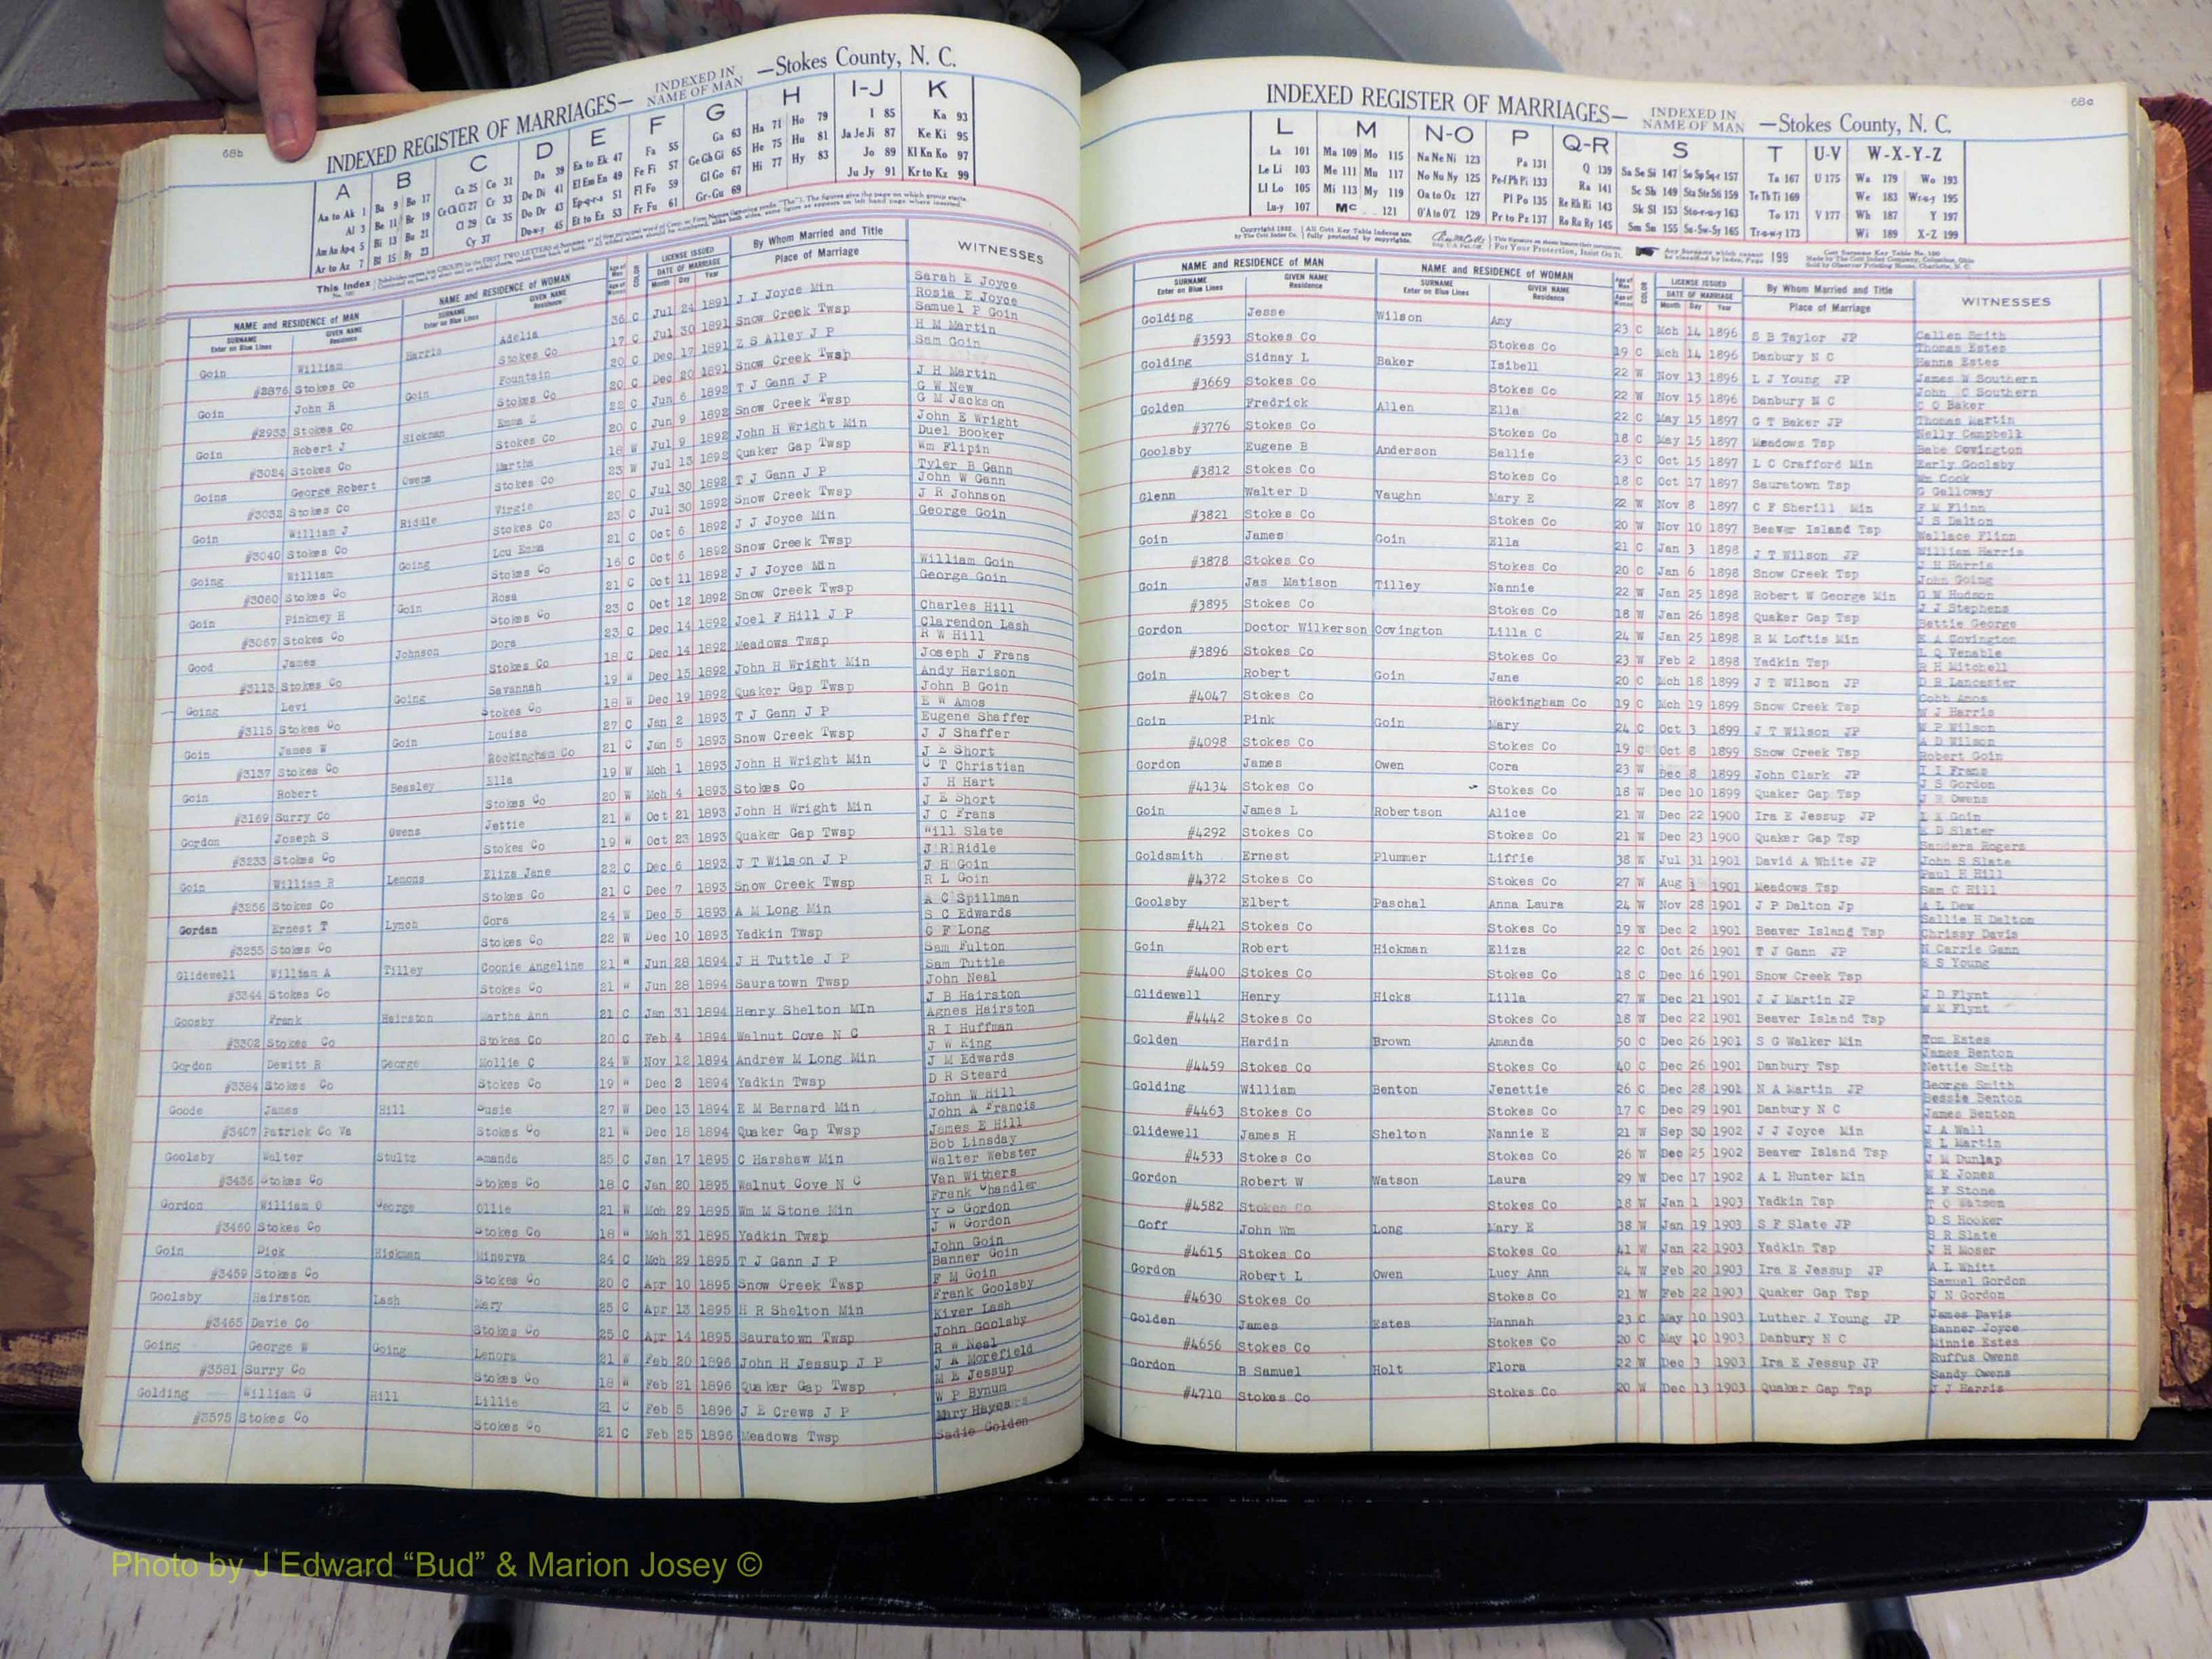 68b
INDEXED REGISTER OF MARRIAGES— INDEXED IN NAME OF MAN —Stokes County, N. C.
A B C D E F G H I-J K
Aa to Ak 1 Ba 9 Bo 17 Ca 25 Co 31 Da 39 Ea to Ek 47 Fa 55 Ga 63 Ha 71 Ho 79 I 85 Ka 93
Al 3 Be 11 Br 19 Ce Ch Ci 27 Cr 33 De Di 41 El Em En 49 Fe Fi 57 Ge Gh Gi 65 He 75 Hu 81 Ja Je Ji 87 Ke Ki 95
Am An Ap-q 5 Bi 13 Bu 21 Cl 29 Cu 35 Do Dr 43 Ep-q-r-s 51 Fl Fo 59 Gl Go 67 Hi 77 Hy 83 Jo 89 Kl Kn Ko 97
Ar to Az 7 Bl 15 By 23 Cy 37 Du-w-y 45 Et to Ez 53 Fr Fu 61 Gr-Gu 69 Ju Jy 91 Kr to Kz 99
NAME and RESIDENCE OF MAN NAME and RESIDENCE OF WOMAN LICENSE ISSUED By Whom Married and Title WITNESSES
SURNAME GIVEN NAME SURNAME GIVEN NAME DATE OF MARRIAGE Place of Marriage
Enter on Blue Lines Residence Enter on Blue Lines Residence COLOR Month Day Year
Goin William Harris Adelia 36 C Jul 24 1891 J J Joyce Min Sarah E Joyce
Rosie E Joyce
#2876 Stokes Co Stokes Co 17 C Jul 30 1891 Snow Creek Twsp Samuel P Goin
Goin John R Goin Fountain 20 C Dec 17 1891 Z S Alley J P H M Martin
Sam Goin
#2933 Stokes Co Stokes Co 20 C Dec 20 1891 Snow Creek Twsp
Goin Robert J Hickman Emma Z 22 C Jun 6 1892 T J Gann J P J H Martin
G W New
#3024 Stokes Co Stokes Co 20 C Jun 9 1892 Snow Creek Twsp G M Jackson
Goins George Robert Owens Martha 18 W Jul 9 1892 John H Wright Min John E Wright
Duel Booker
#3032 Stokes Co Stokes Co 23 W Jul 13 1892 Quaker Gap Twsp Wm Flipin
Goin William J Riddle Virgie 20 C Jul 30 1892 T J Gann J P Tyler B Gann
John W Gann
#3040 Stokes Co Stokes Co 23 C Jul 30 1892 Snow Creek Twsp J R Johnson
Going William Going Lou Emma 21 C Oct 6 1892 J J Joyce Min George Goin
#3060 Stokes Co Stokes Co 16 C Oct 6 1892 Snow Creek Twsp
Goin Pinkney H Goin Rosa 21 C Oct 11 1892 J J Joyce Min William Goin
George Goin
#3067 Stokes Co Stokes Co 23 C Oct 12 1892 Snow Creek Twsp
Good James Johnson Dora 23 C Dec 14 1892 Joel F Hill J P Charles Hill
Clarendon Lash
#3113 Stokes Co Stokes Co 18 C Dec 14 1892 Meadows Twsp R W Hill
Going Levi Going Savannah 19 W Dec 15 1892 John H Wright Min Joseph J Frans
Andy Harison
#3115 Stokes Co Stokes Co 18 W Dec 19 1892 Quaker Gap Twsp John B Goin
Goin James W Goin Louisa 27 C Jan 2 1893 T J Gann J P E W Amos
Eugene Shaffer
#3137 Stokes Co Rockingham Co 21 C Jan 5 1893 Snow Creek Twsp J J Shaffer
Goin Robert Beasley Ella 19 W Mch 1 1893 John H Wright Min J E Short
C T Christian
#3169 Surry Co Stokes Co 20 W Mch 4 1893 Stokes Co J H Hart
Gordon Joseph S Owens Jettie 21 W Oct 21 1893 John H Wright Min J E Short
J C Frans
#3233 Stokes Co Stokes Co 19 W Oct 23 1893 Quaker Gap Twsp Will Slate
Goin William R Lemons Eliza Jane 22 C Dec 6 1893 J T Wilson J P J R Ridle
J H Goin
#3256 Stokes Co Stokes Co 21 C Dec 7 1893 Snow Creek Twsp R L Goin
Gordan Ernest T Lynch Cora 24 W Dec 5 1893 A M Long Min A C Spillman
S C Edwards
#3255 Stokes Co Stokes Co 22 W Dec 10 1893 Yadkin Twsp G F Long
Glidewell William A Tilley Coonie Angeline 21 W Jun 28 1894 J H Tuttle J P Sam Fulton
Sam Tuttle
#3344 Stokes Co Stokes Co 21 W Jun 28 1894 Sauratown Twsp John Neal
Goosby Frank Hairston Martha Ann 21 C Jan 31 1894 Henry Shelton MIn J B Hairston
Agnes Hairston
#3302 Stokes Co Stokes Co 20 C Feb 4 1894 Walnut Cove N C R I Huffman
Gordon Dewitt R George Mollie C 24 W Nov 12 1894 Andrew M Long Min J W King
J M Edwards
#3384 Stokes Co Stokes Co 19 W Dec 2 1894 Yadkin Twsp D R Steard
Goode James Hill Susie 27 W Dec 13 1894 E M Barnard Min John W Hill
John A Francis
#3407 Patrick Co Va Stokes Co 21 W Dec 18 1894 Quaker Gap Twsp James E Hill
Goolsby Walter Stultz Amanda 25 C Jan 17 1895 C Harshaw Min Bob Linsday
Walter Webster
#3436 Stokes Co Stokes Co 18 C Jan 20 1895 Walnut Cove N C Van Withers
Gordon William O George Ollie 21 W Mch 29 1895 Wm M Stone Min Frank Chandler
Y S Gordon
#3460 Stokes Co Stokes Co 18 W Mch 31 1895 Yadkin Twsp J W Gordon
Goin Dick Hickman Minerva 24 C Mch 29 1895 T J Gann J P John Goin
Banner Goin
#3459 Stokes Co Stokes Co 20 C Apr 10 1895 Snow Creek Twsp F M Goin
Goolsby Hairston Lash Mary 25 C Apr 13 1895 H R Shelton Min Frank Goolsby
Kiver Lash
#3465 Davie Co Stokes Co 25 C Apr 14 1895 Sauratown Twsp John Goolsby
Going George W Going Lenora 21 W Feb 20 1896 John H Jessup J P R W Neal
J A Morefield
#3581 Surry Co Stokes Co 18 W Feb 21 1896 Quaker Gap Twsp M E Jessup
Golding William G Hill Lillie 21 C Feb 5 1896 J E Crews J P W P Bynum
Mary Hayes
#3575 Stokes Co Stokes Co 21 C Feb 25 1896 Meadows Twsp Sadie Golden
68c
INDEXED REGISTER OF MARRIAGES— INDEXED IN NAME OF MAN —Stokes County, N. C.
L M N-O P Q-R S T U-V W-X-Y-Z
La 101 Ma 109 Mo 115 Na Ne Ni 123 Pa 131 Q 139 Sa Se Si 147 So Sp Sq-r 157 Ta 167 U 175 Wa 179 Wo 193
Le Li 103 Me 111 Mu 117 No Nu Ny 125 Pe-f Ph Pi 133 Ra 141 Sc Sh 149 Sta Ste Sti 159 Te Th Ti 169 We 183 Wr-u-y 195
Ll Lo 105 Mi 113 My 119 Oa to Oz 127 Pl Po 135 Re Rh Ri 143 Sk Sl 153 Sto-r-u-y 163 To 171 V 177 Wh 187 Y 197
Lu-y 107 Mc 121 O'A to O'Z 129 Pr to Pz 137 Ro Ru Ry 145 Sm Sn 155 Su-Sw-Sy 165 Tr-u-w-y 173 Wi 189 X-Z 199
NAME and RESIDENCE OF MAN NAME and RESIDENCE OF WOMAN LICENSE ISSUED By Whom Married and Title WITNESSES
SURNAME GIVEN NAME SURNAME GIVEN NAME DATE OF MARRIAGE Place of Marriage
Enter on Blue Lines Residence Enter on Blue Lines Residence COLOR Month Day Year
Golding Jesse Wilson Amy 23 C Mch 14 1896 S B Taylor JP Callen Smith
Thomas Estes
#3593 Stokes Co Stokes Co 19 C Mch 14 1896 Danbury N C Hanna Estes
Golding Sidnay L Baker Isibell 22 W Nov 13 1896 L J Young JP James W Southern
John C Southern
#3669 Stokes Co Stokes Co 22 W Nov 15 1896 Danbury N C C O Baker
Golden Fredrick Allen Ella 22 C May 15 1897 G T Baker JP Thomas Martin
Nelly Campbell
#3776 Stokes Co Stokes Co 18 C May 15 1897 Meadows Tsp Babe Covington
Goolsby Eugene B Anderson Sallie 23 C Oct 15 1897 L C Crafford Min Early Goolsby
Wm Cook
#3812 Stokes Co Stokes Co 18 C Oct 17 1897 Sauratown Tsp G Galloway
Glenn Walter D Vaughn Mary E 22 W Nov 8 1897 C F Sherill Min F M Flinn
J S Dalton
#3821 Stokes Co Stokes Co 20 W Nov 10 1897 Beaver Island Tsp Wallace Flinn
Goin James Goin Ella 21 C Jan 3 1898 J T Wilson JP William Harris
J H Harris
#3878 Stokes Co Stokes Co 20 C Jan 6 1898 Snow Creek Tsp John Going
Goin Jas Matison Tilley Nannie 22 W Jan 25 1898 Robert W George Min G W Hudson
J J Stephens
#3895 Stokes Co Stokes Co 18 W Jan 26 1898 Quaker Gap Tsp Bettie George
Gordon Doctor Wilkerson Covington Lilla C 24 W Jan 25 1898 R M Loftis Min E A Covington
L Q Venable
#3896 Stokes Co Stokes Co 23 W Feb 2 1898 Yadkin Tsp R H Mitchell
Goin Robert Goin Jane 20 C Mch 18 1899 J T Wilson JP D R Lancaster
Cobb Amos
#4047 Stokes Co Rockingham Co 19 C Mch 19 1899 Snow Creek Tsp W J Harris
Goin Pink Goin Mary 24 C Oct 3 1899 J T Wilson JP W P Wilson
A D Wilson
#4098 Stokes Co Stokes Co 19 C Oct 8 1899 Snow Creek Tsp Robert Goin
Gordon James Owen Cora 23 W Dec 8 1899 John Clark JP I I Frans
J S Gordon
#4134 Stokes Co Stokes Co 18 W Dec 10 1899 Quaker Gap Tsp Owens
Goin James L Robertson Alice 21 W Dec 22 1900 Ira E Jessup JP Goin
Slater
#4292 Stokes Co Stokes Co 21 W Dec 23 1900 Quaker Gap Tsp Sanders Rogers
Goldsmith Ernest Plummer Liffie 38 W Jul 31 1901 David A White JP John S Slate
Paul H Hill
#4372 Stokes Co Stokes Co 27 W Aug 1901 Meadows Tsp Sam C Hill
Goolsby Elbert Paschal Anna Laura 24 W Nov 28 1901 J P Dalton Jp A L Dew
Sallie H Dalton
#4421 Stokes Co Stokes Co 19 W Dec 2 1901 Beaver Island Tsp Chrissy Davis
Goin Robert Hickman Eliza 22 C Oct 26 1901 T J Gann JP N Carrie Gann
S S Young
#4400 Stokes Co Stokes Co 18 C Dec 16 1901 Snow Creek Tsp
Glidewell Henry Hicks Lilla 27 W Dec 21 1901 J J Martin JP J D Flynt
W M Flynt
#4442 Stokes Co Stokes Co 18 W Dec 22 1901 Beaver Island Tsp
Golden Hardin Brown Amanda 50 C Dec 26 1901 S G Walker Min Tom Estes
James Benton
#4459 Stokes Co Stokes Co 40 C Dec 26 1901 Danbury Tsp Nettie Smith
Golding William Benton Jenettie 26 C Dec 28 1901 N A Martin JP George Smith
Bessie Benton
#4463 Stokes Co Stokes Co 17 C Dec 29 1901 Danbury N C James Benton
Glidewell James H Shelton Nannie E 21 W Sep 30 1902 J J Joyce Min J A Wall
R L Martin
#4533 Stokes Co Stokes Co 26 W Dec 25 1902 Beaver Island Tsp J M Dunlap
Gordon Robert W Watson Laura 29 W Dec 17 1902 A L Hunter Min W E Jones
E F Stone
#4582 Stokes Co Stokes Co 18 W Jan 1 1903 Yadkin Tsp T C Watson
Goff John Wm Long Mary E 38 W Jan 19 1903 S F Slate JP D S Hooker
S R Slate
#4615 Stokes Co Stokes Co 41 W Jan 22 1903 Yadkin Tsp J H Moser
Gordon Robert L Owen Lucy Ann 24 W Feb 20 1903 Ira E Jessup JP A L Whitt
Samuel Gordon
#4630 Stokes Co Stokes Co 21 W Feb 22 1903 Quaker Gap Tsp J N Gordon
Golden James Estes Hannah 23 C May 10 1903 Luther J Young JP James Davis
Banner Joyce
#4656 Stokes Co Stokes Co 20 C May 10 1903 Danbury N C Minnie Estes
Gordon B Samuel Holt Flora 22 W Dec 3 1903 Ira E Jessup JP Ruffus Owens
Sandy Owens
#4710 Stokes Co Stokes Co 20 W Dec 13 1903 Quaker Gap Tsp J J Harris
Photo by J Edward “Bud” & Marion Josey ©